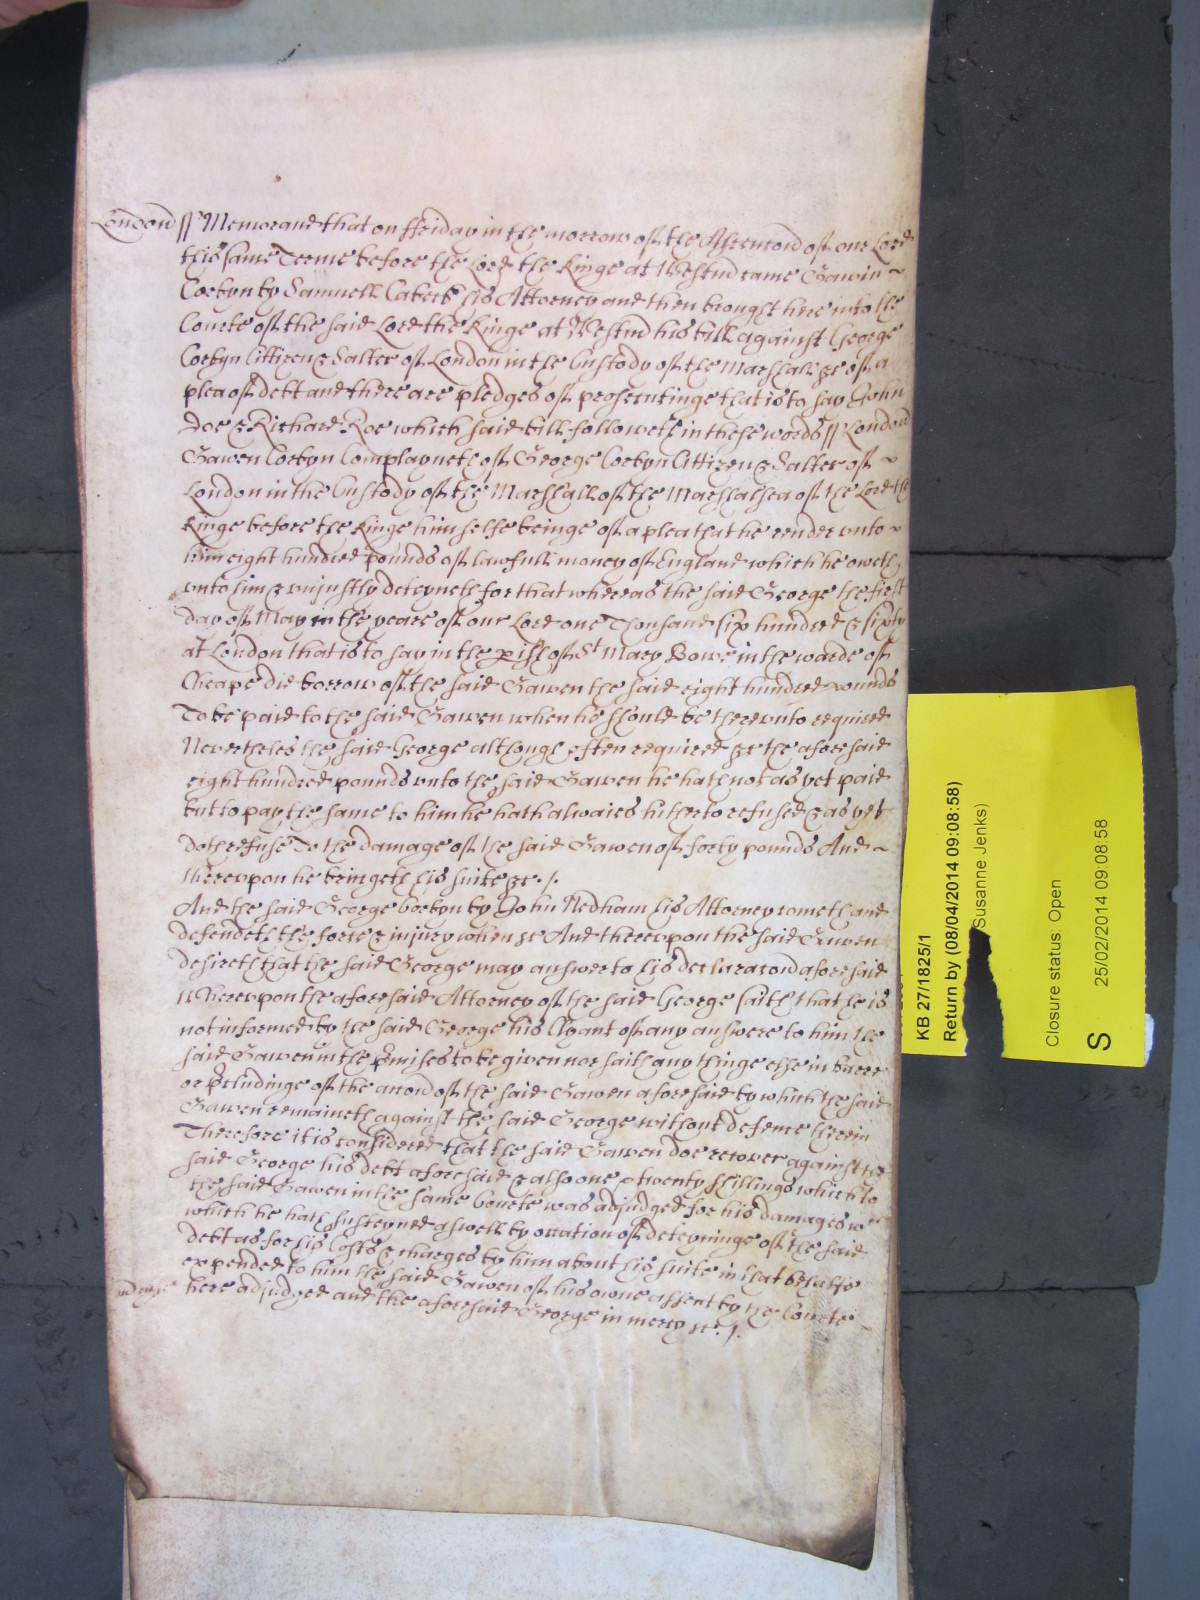 London ss Memorand that on ffriday in the morrow of the Ascencon of our Lord
this same Terme before the Lord the Kinge at Westm came Gawin
Corbyn by Samuell his Attorney and then brought here into the
Courte of the said Lord the Kinge at Westm his bill against George
Corbyn Cittizen & Salter of London in the Custody of the Marshall &c of a
plea of debt and there are pledges of prosecutinge that is to say John
Doe & Richard Roe which said bill followeth in these words ss London
Gawen Corbyn Complayneth of George Corbyn Cittizen & Salter of
London in the Custody of the Marshall of the Marshalsea of the Lord the
Kinge before the Kinge himselfe beinge of a plea that he render unto
him eight hundred pounds of lawfull money of England which he oweth
unto him & unjustly deteyneth for that whereas the said George the first
day of May in the yeare of our Lord one Thousand six hundred & sixty
at London that is to say in the pish of St Mary Bowe in the warde of
Cheape did borrow of the said Gawen the said eight hundred pounds
To be paid to the said Gawen when he should be thereunto required
Neverthelesse the said George although often required &c the aforesaid
eight hundred pounds unto the said Gawen he hath not as yet paid
but to pay the same to him he hath alwaies hitherto refused & as yet
doth refuse To the damage of the said Gawen of forty pounds And
thereupon he bringeth his suite &c ./.
And the said George Corbyn by John Nedham his Attorney cometh and
defendeth the force & injury when &c And thereupon the said Gawen
desireth that the said George may answer to his declaracond aforesaid
Whereupon the aforesaid Attorney of the said George saith that he is
not informed by the said George his Clyant of any answere to him the
said Gawen in the pmises to be given nor saith any thinge else in barre
or pcludinge of the accond of the said Gawen aforesaid by which the said
Gawen remaineth against the said George without defence herein
Therefore it is considered that the said Gawen doe recover against the
said George his debt aforesaid & also one & twenty shillings which to
the said Gawen in the same Courte was adjudged for his damages
which he hath susteyned aswell by occation of deteyninge of the said
debt as for his Costs & charges by him about his suite in that behalfe
expended to him the said Gawen of his owne assent by the Courte
here adjudged and the aforesaid George in mercy &c ./.
KB 27/1825/1
Return by (08/04/2014 09:08:58)
Susanne Jenks)
Closure status: Open
S 25/02/2014 09:08:58